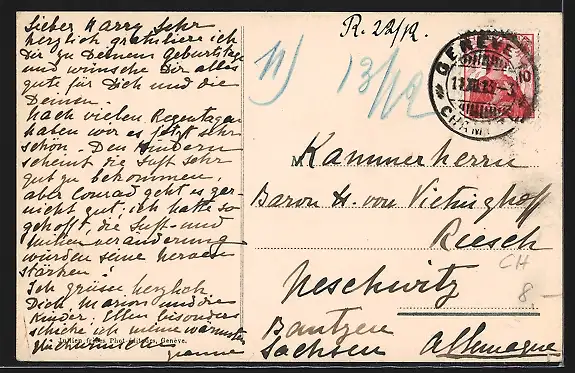 Lieber Harry Sehr
herzlich gratuliere ich
Dir zu Deinem Geburtstage
und wünsche Dir alles
gute für Dich und die
Deinen.
Nach vielen Regentagen
haben wir es jetzt sehr
schön. Den Kindern
scheint die Luft sehr
gut zu bekommen,
aber Conrad geht es gar
nicht gut, ich hatte so
gehofft, die Luft- und
veränderung
würden seine Nerven
stärken!
Ich grüsse herzlich
Dich, Marion und die
Kinder. Ellen besonders
schicke ich meine wärmsten
Glückwünsche
Jullien frères Phot-éditeurs, Genève.
R. 22/12.
11) 13/12
GENÈVE
Kammerherrn
Baron H. von Vietinghoff
Riesch
CH
Neschwitz
8.-
Bautzen
Sachsen Allemagne